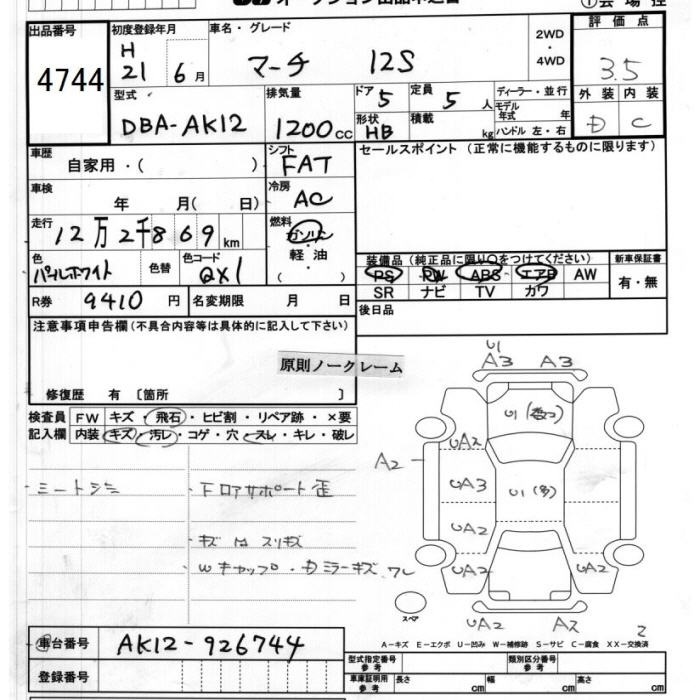 オークション出品申込書
①会場控
出品番号
4744
初度登録年月
H
21 6月
車名・グレード
マーチ 12S
2WD
・
4WD
評価点
3.5
外装 内装
D C
型式
DBA-AK12
排気量
1200cc
ドア 5
定員 5人
形状 HB
積載 kg
ディーラー・並行
モデル年式 年
ハンドル 左・右
車歴
自家用・( )
シフト
FAT
セールスポイント (正常に機能するものに限ります)
車検
年 月( 日)
冷房
AC
走行
12万2千869km
燃料
ガソリン
軽油
( )
色
パールホワイト
色替
色コード
QX1
装備品(純正品に限り○をつけてください)
新車保証書
PS PW ABS エアB AW
SR ナビ TV カワ
有・無
R券 9410円
名変期限 月 日
後日品
注意事項申告欄(不具合内容等は具体的に記入して下さい)
原則ノークレーム
修復歴 有〔箇所 〕
検査員記入欄
FW キズ・飛石・ヒビ割・リペア跡・×要
内装 キズ・汚レ・コゲ・穴・スレ・キレ・破レ
U1
A3 A3
U1
UA2
A2
UA3
U1(多)
UA2
UA2
UA2
UA2 A2
スペア
2
・フロアサポート歪
・キズ M スリキズ
Wキャップ・Dミラーキズ ワレ
A-キズ E-エクボ U-凹み W-補修跡 S-サビ C-腐食 XX-交換済
車台番号 AK12-926744
登録番号
型式指定番号 参考
類別区分番号 参考
車庫証明用 参考 長さ cm 幅 cm 高さ cm